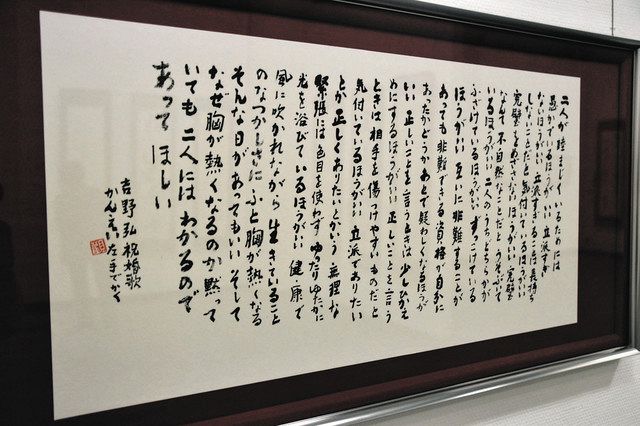 二人が睦まじくいるためには
愚かでいるほうがいい 立派すぎ
ないほうがいい 立派すぎることは長持ち
しないことだと気付いているほうがいい
完璧をめざさないほうがいい 完璧
なんて不自然なことだと うそぶいて
いるほうがいい 二人のうちどちらかが
ふざけているほうがいい ずっこけている
ほうがいい 互いに非難することが
あっても非難できる資格が自分に
あったかどうかあとで疑わしくなるほうが
いい 正しいことを言うときは少しひかえ
めにするほうがいい 正しいことを言う
ときは相手を傷つけやすいものだと
気付いているほうがいい 立派でありたい
とか正しくありたいとかいう 無理な
緊張には色目を使わず ゆったりゆたかに
光を浴びているほうがいい 健康で
風に吹かれながら 生きていること
のなつかしさに ふと胸が熱くなる
そんな日があってもいい そして
なぜ胸が熱くなるのか 黙って
いても 二人には わかるので
あって ほしい
吉野弘 祝婚歌
かんえい 左手でかく